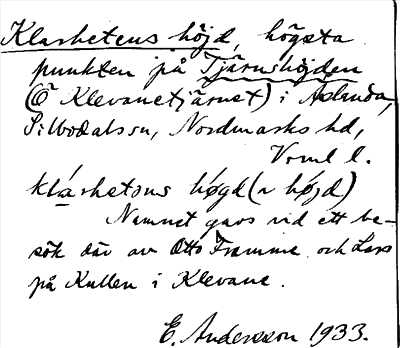 Klarhetens höjd, högsta
punkten på Tjärnshöjden
(Ö Klevanetjärnet) i Åslanda,
Silbodals sn, Nordmarks hd,
Vrml l.
klárhetens høgd (~ höjd)
Namnet gavs vid ett be-
sök där av Otto Framme och Lars
på Kullen i Klevane.
E. Andersson 1933.